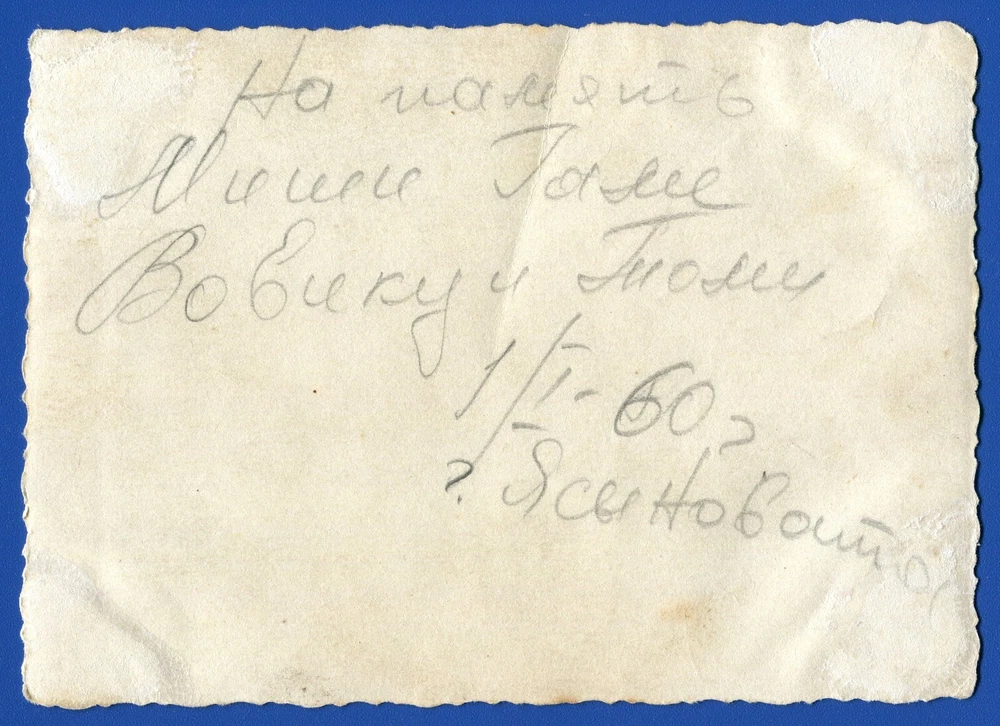 На память
Миши Гали
Вовику и Томи
1/I-60 г
г. Ясыновата